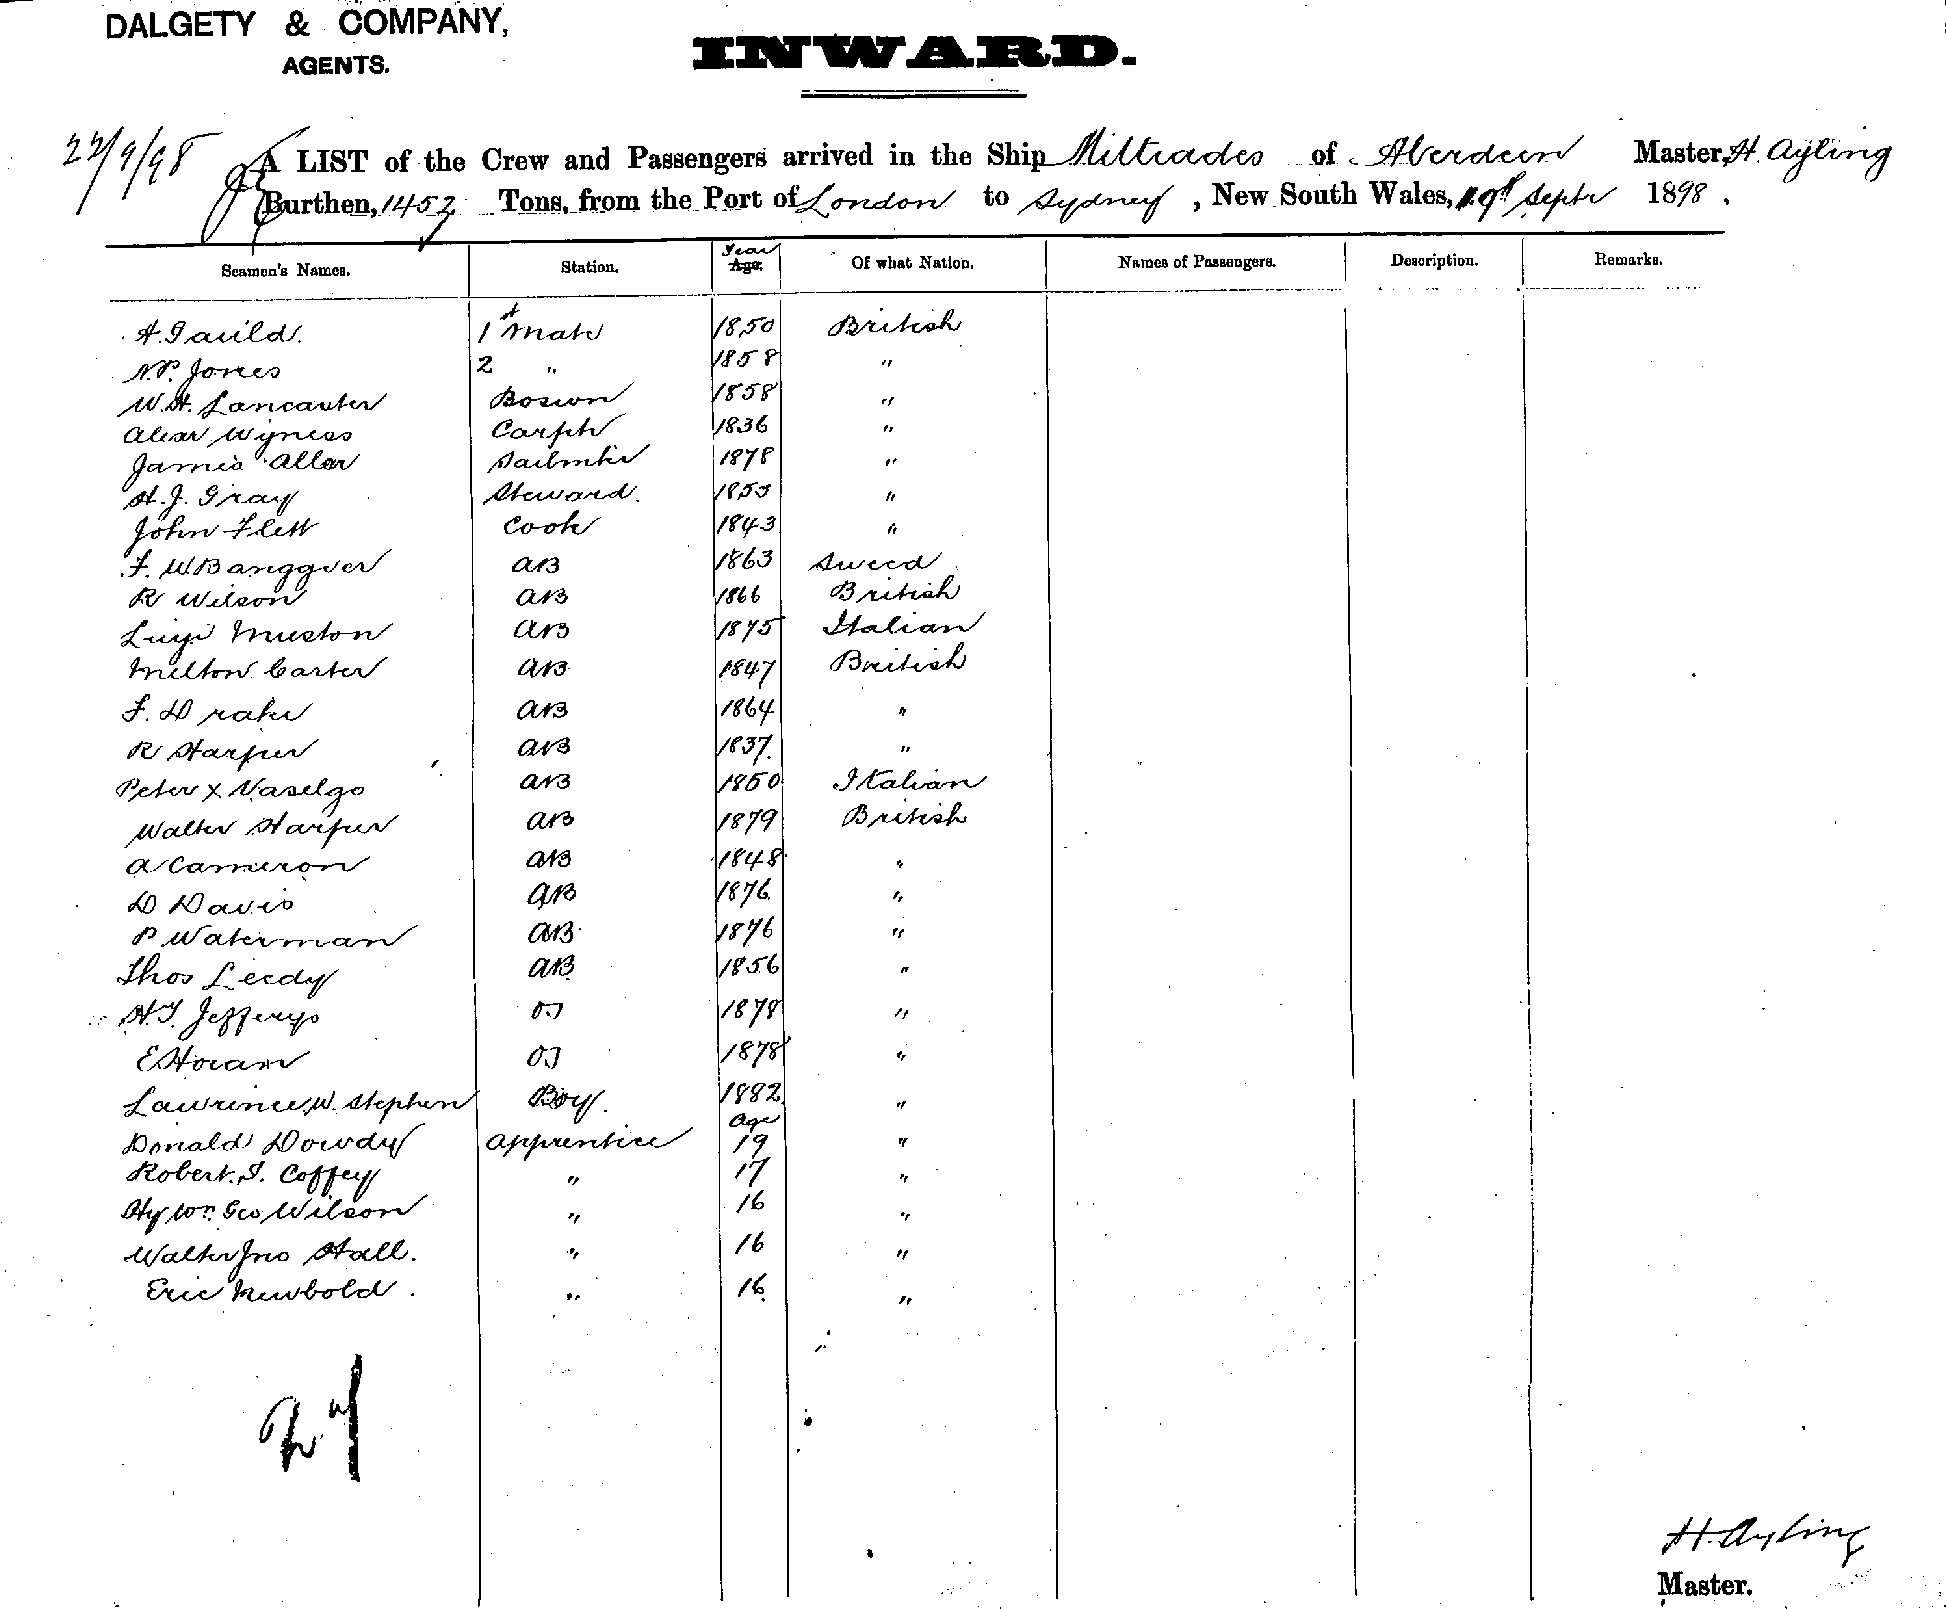 DALGETY & COMPANY,
AGENTS.
INWARD.
22/9/98
A LIST of the Crew and Passengers arrived in the Ship Miltiades of Aberdeen Master, H. Ayling
Burthen, 1452 Tons, from the Port of London to Sydney, New South Wales, 19th Septr 1898.
Seamen's Names. Station. Year Age. Of what Nation. Names of Passengers. Description. Remarks.
A. Gauld. 1st Mate 1850 British
N.P. Jones 2 " 1858 "
W.H. Lancaster Bosun 1858 "
Alexr Wyness Carptr 1836 "
James Allan Sailmkr 1878 "
H.J. Gray Steward. 1853 "
John Flett Cook 1843 "
F. W Banggver AB 1863 Sweed
R Wilson AB 1866 British
Luigi Muston AB 1875 Italian
Milton Carter AB 1847 British
F. Drake AB 1864 "
R Harper AB 1837. "
Peter x Vaselgo AB 1850 Italian
Walter Harper AB 1879 British
A Cameron AB 1848 "
D Davis AB 1876 "
P Waterman AB 1876 "
Thos Leedy AB 1856 "
H.T. Jefferys OS 1878 "
E Horan OS 1878 "
Lawrence W. Stephen Boy. 1882 "
Age
Donald Dowdy Apprentice 19 "
Robert. I. Coffey " 17 "
Hy Wm Geo Wilson " 16 "
Walter Jno Hall. " 16 "
Eric Newbold. " 16 "
H. Ayling
Master.